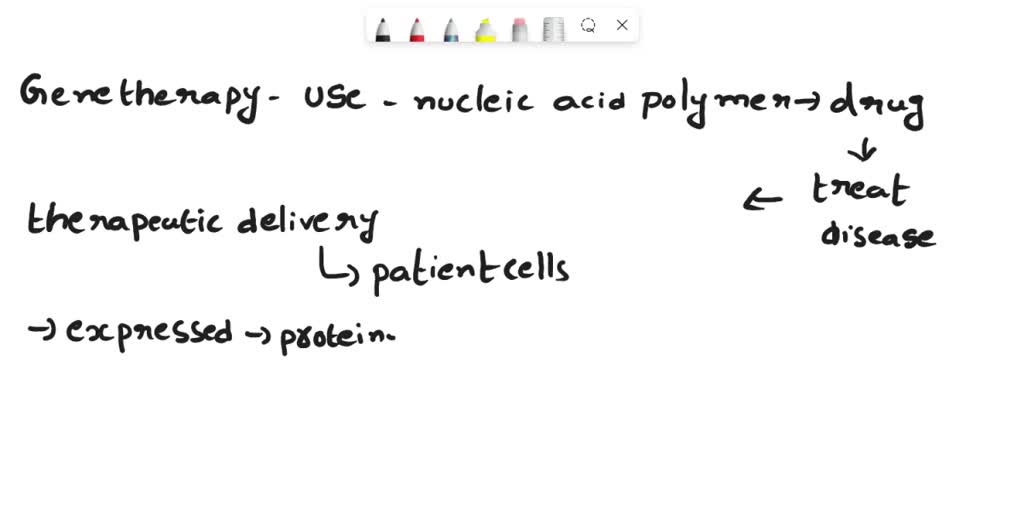 Genetherapy - USe - nucleic acid polymer → drug
↓
← treat
disease
therapeutic delivery
↳ patient cells
→ expressed → protein.